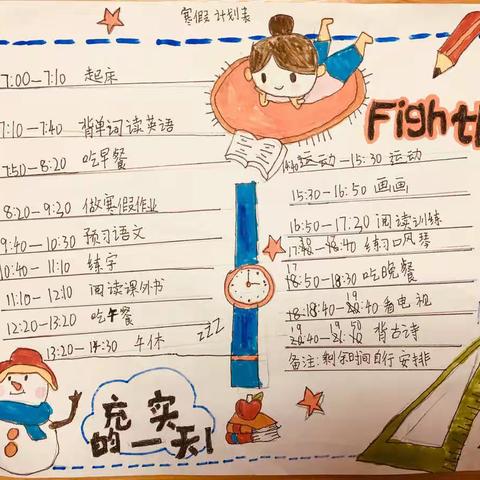 寒假计划表
7:00—7:10 起床
7:10—7:40 背单词读英语
7:50—8:20 吃早餐
8:20—9:20 做寒假作业
9:40—10:30 预习语文
10:40—11:10 练字
11:10—12:10 阅读课外书
12:20—13:20 吃午餐
13:20—14:30 午休
zzz
Fight
运动—15:30 运动
15:30—16:50 画画
16:50—17:30 阅读训练
练习口风琴
吃晚餐
看电视
背古诗
备注:剩余时间自行安排
充实
的一天!